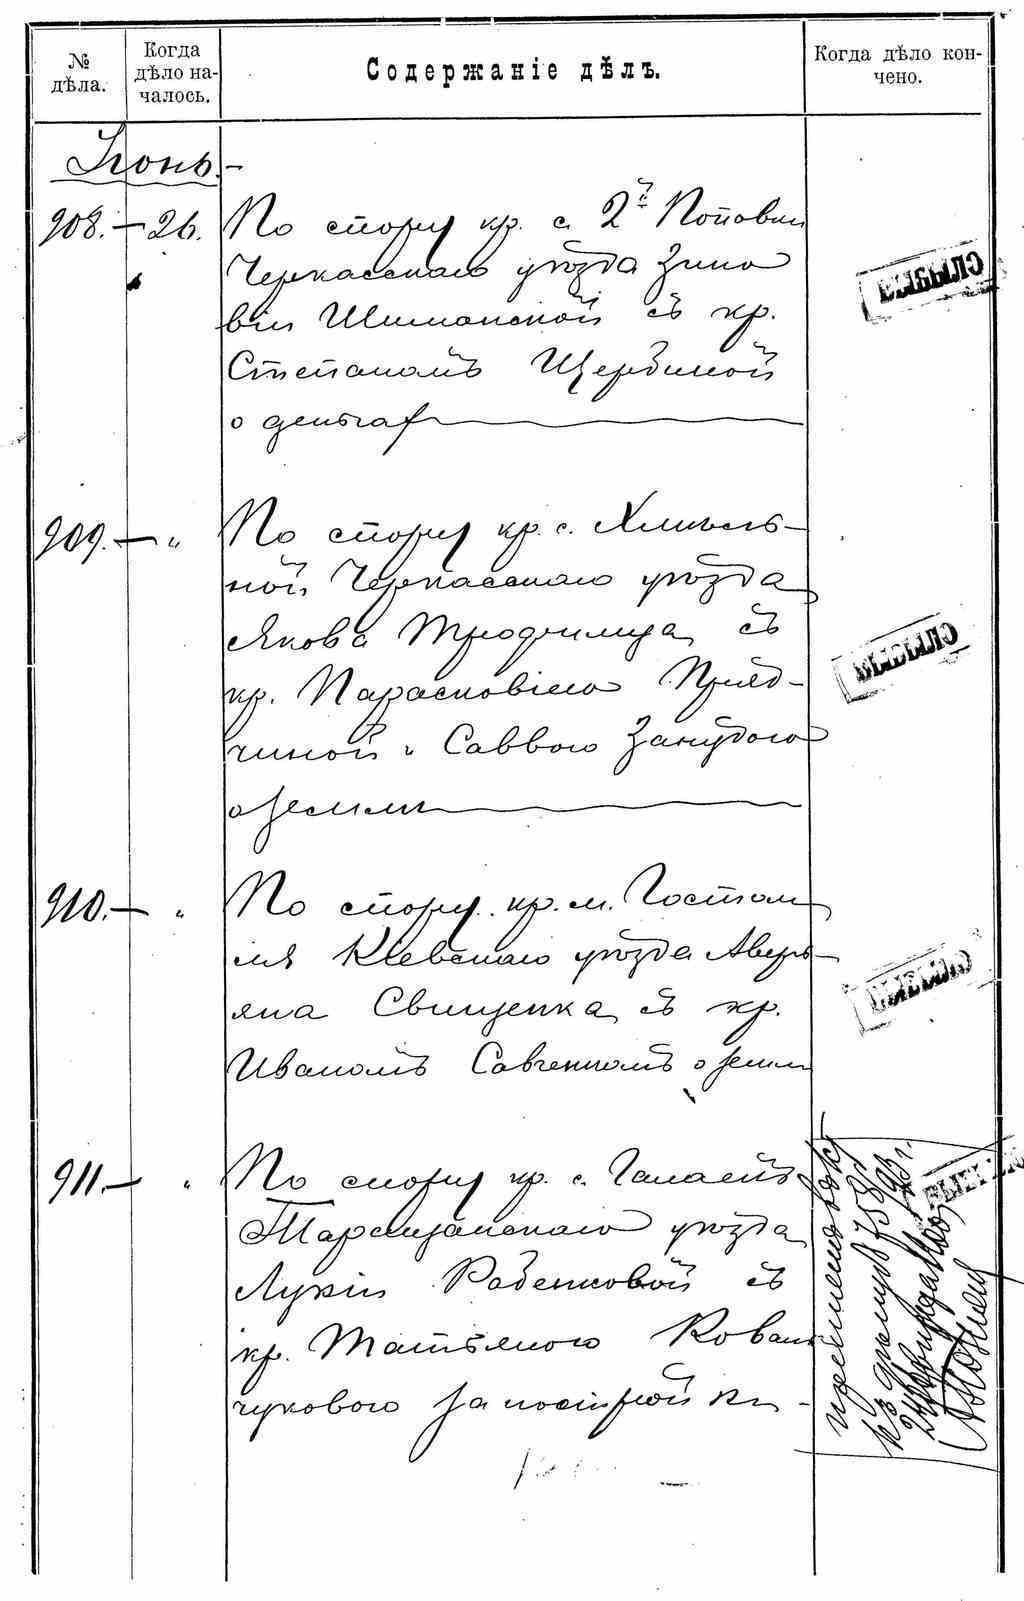 № дѣла.
Когда дѣло началось.
Содержаніе дѣлъ.
Когда дѣло кончено.
Іюнь.
908. — 26. По спору кр. с. 2й Поповки
Черкасскаго уѣзда Зино
віи Шиманской съ кр.
Степаномъ Щербиной
о деньгах
909. — " По спору кр. с. Хмѣль-
ной Черкасскаго уѣзда
Якова Трофимца съ
кр. Парасковіею
чиной и Саввою
о земли
910. — " По спору кр. м. Гостом
ля Кіевскаго уѣзда Аверь-
яна Свищенка съ кр.
Иваномъ Савченкомъ о земли
911. — " По спору кр. с.
Таращанскаго уѣзда
Лукіи Рабенковой съ
кр. Татьяною Коваль
чуковою за постройки